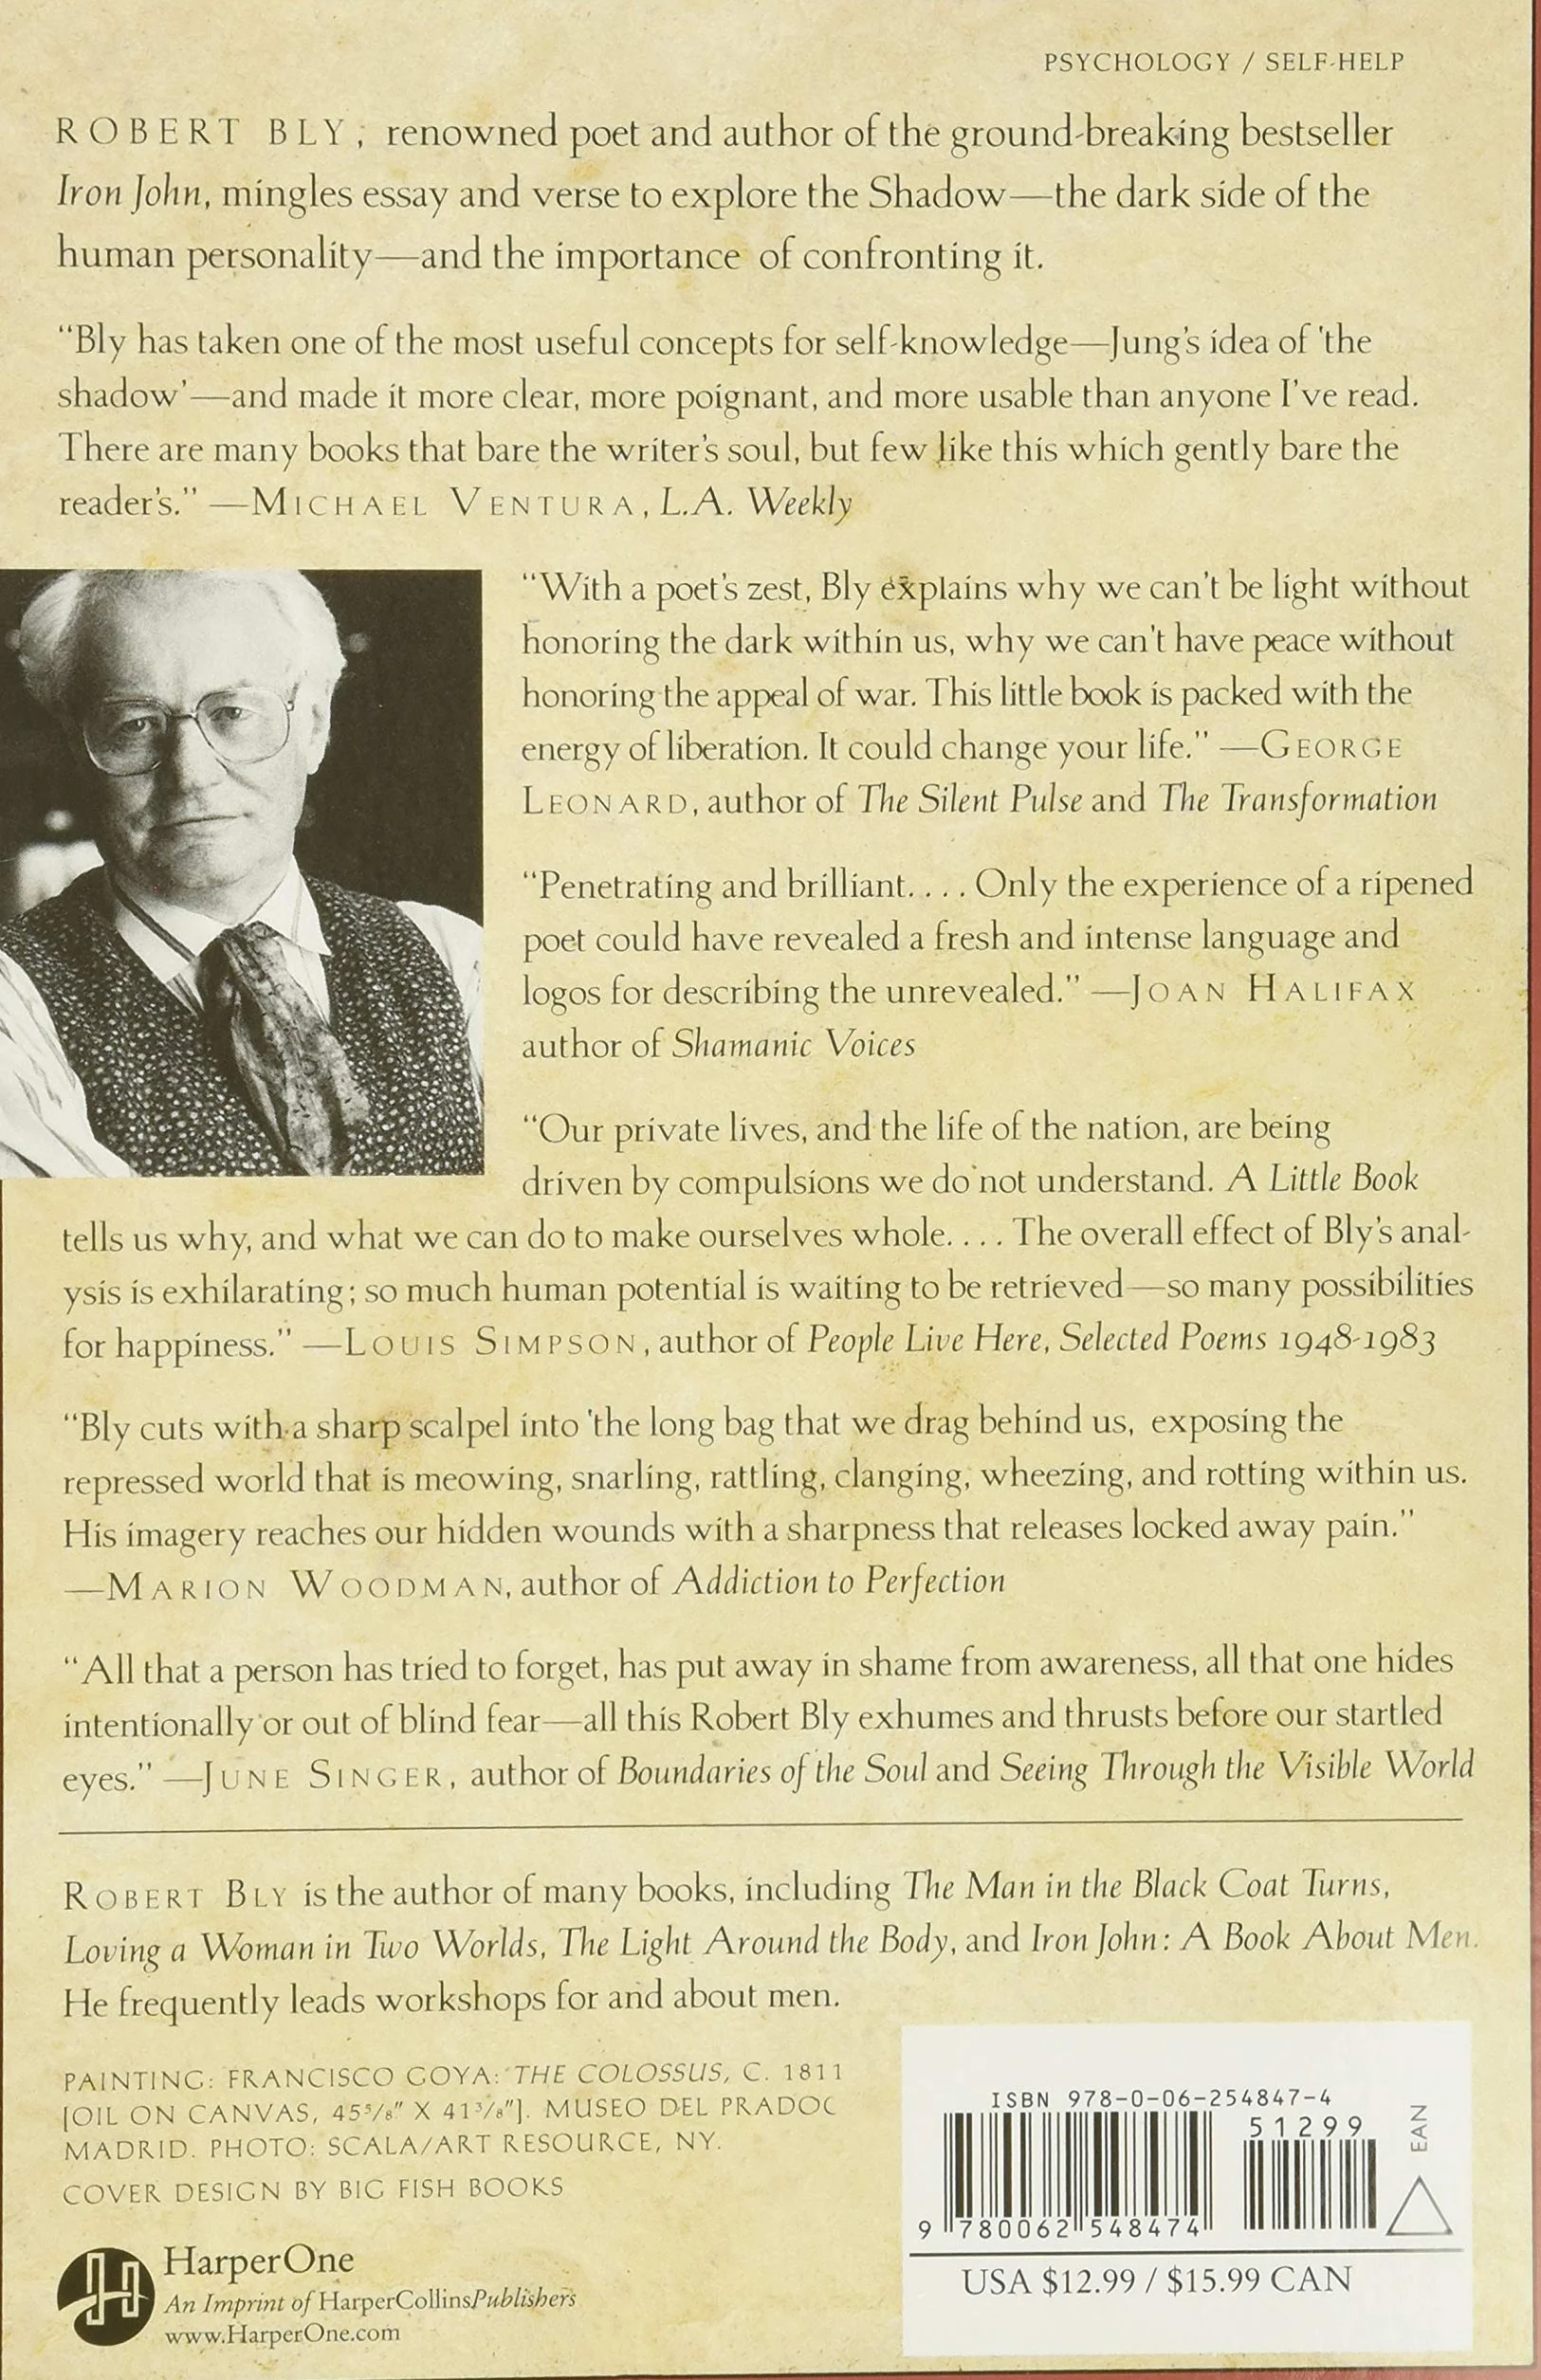 PSYCHOLOGY / SELF-HELP
ROBERT BLY, renowned poet and author of the ground-breaking bestseller
Iron John, mingles essay and verse to explore the Shadow—the dark side of the
human personality—and the importance of confronting it.
“Bly has taken one of the most useful concepts for self-knowledge—Jung's idea of 'the
shadow'—and made it more clear, more poignant, and more usable than anyone I've read.
There are many books that bare the writer's soul, but few like this which gently bare the
reader's.” —MICHAEL VENTURA, L.A. Weekly
“With a poet's zest, Bly explains why we can't be light without
honoring the dark within us, why we can't have peace without
honoring the appeal of war. This little book is packed with the
energy of liberation. It could change your life.” —GEORGE
LEONARD, author of The Silent Pulse and The Transformation
“Penetrating and brilliant. . . . Only the experience of a ripened
poet could have revealed a fresh and intense language and
logos for describing the unrevealed.” —JOAN HALIFAX
author of Shamanic Voices
“Our private lives, and the life of the nation, are being
driven by compulsions we do not understand. A Little Book
tells us why, and what we can do to make ourselves whole. . . . The overall effect of Bly's anal-
ysis is exhilarating; so much human potential is waiting to be retrieved—so many possibilities
for happiness.” —LOUIS SIMPSON, author of People Live Here, Selected Poems 1948-1983
“Bly cuts with a sharp scalpel into 'the long bag that we drag behind us, exposing the
repressed world that is meowing, snarling, rattling, clanging, wheezing, and rotting within us.
His imagery reaches our hidden wounds with a sharpness that releases locked away pain.”
—MARION WOODMAN, author of Addiction to Perfection
“All that a person has tried to forget, has put away in shame from awareness, all that one hides
intentionally or out of blind fear—all this Robert Bly exhumes and thrusts before our startled
eyes.” —JUNE SINGER, author of Boundaries of the Soul and Seeing Through the Visible World
ROBERT BLY is the author of many books, including The Man in the Black Coat Turns,
Loving a Woman in Two Worlds, The Light Around the Body, and Iron John: A Book About Men.
He frequently leads workshops for and about men.
PAINTING: FRANCISCO GOYA: THE COLOSSUS, C. 1811
[OIL ON CANVAS, 45⅝" X 41⅜"]. MUSEO DEL PRADOC
MADRID. PHOTO: SCALA/ART RESOURCE, NY.
COVER DESIGN BY BIG FISH BOOKS
HarperOne
An Imprint of HarperCollinsPublishers
www.HarperOne.com
ISBN 978-0-06-254847-4
51299
EAN
9 780062 548474
USA $12.99 / $15.99 CAN